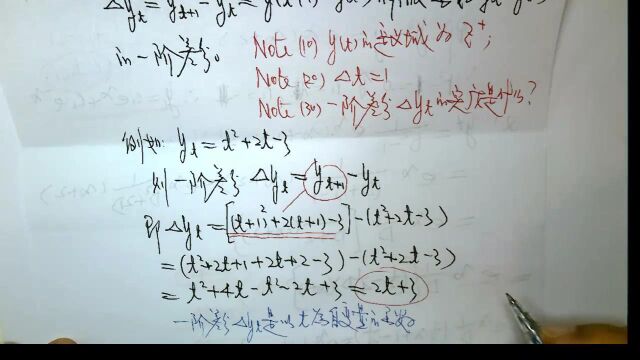 Δy_t = y_{t+1} - y_t = y(t+1)
的一阶差分。
Note (1°) y(t)的定义域为 Z⁺;
Note (2°) Δt = 1
Note (3°) 一阶差分 Δy_t 的实质是什么?
例如: y_t = t²+2t-3
则一阶差分 Δy_t = y_{t+1} - y_t
即 Δy_t = [(t+1)²+2(t+1)-3] - (t²+2t-3)
= (t²+2t+1+2t+2-3) - (t²+2t-3)
= t²+4t-t²-2t+3 = 2t+3
一阶差分 Δy_t 是以 t 为自变量的函数。